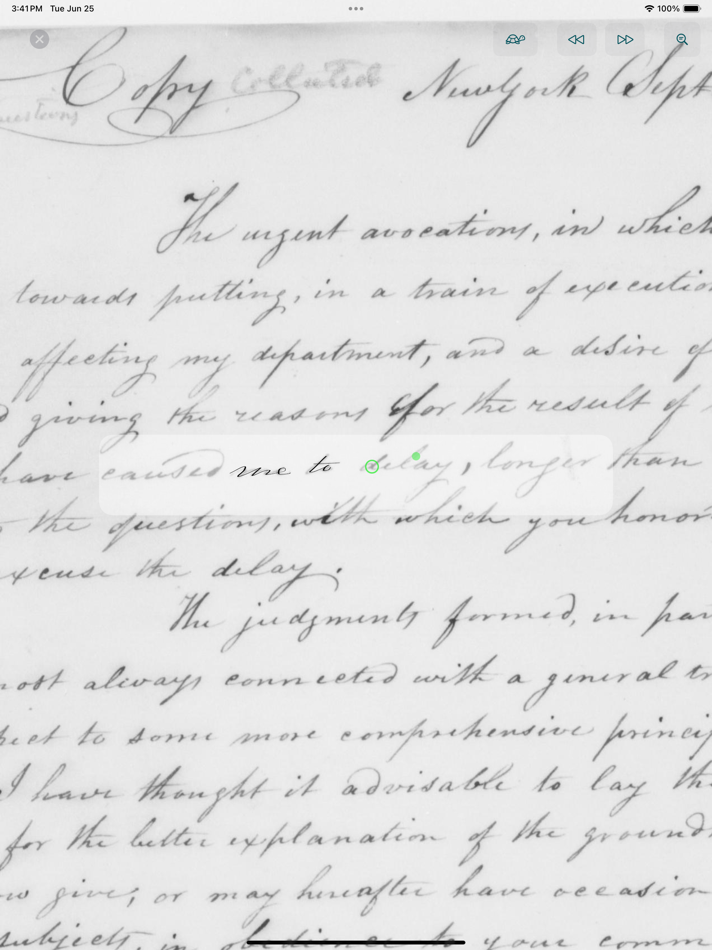 3:41 PM Tue Jun 25 100%
Copy Collated New York Sept
uestions
The urgent avocations, in which
towards putting, in a train of executio
affecting my department, and a desire of
d giving the reasons for the result of
have caused me to delay, longer than
the questions, with which you honor
xcuse the delay.
The judgments formed, in par
most always connected with a general tr
pect to some more comprehensive princip
I have thought it advisable to lay the
for the better explanation of the ground
ow give, or may hereafter have occasion
subjects, in obedience to your comm